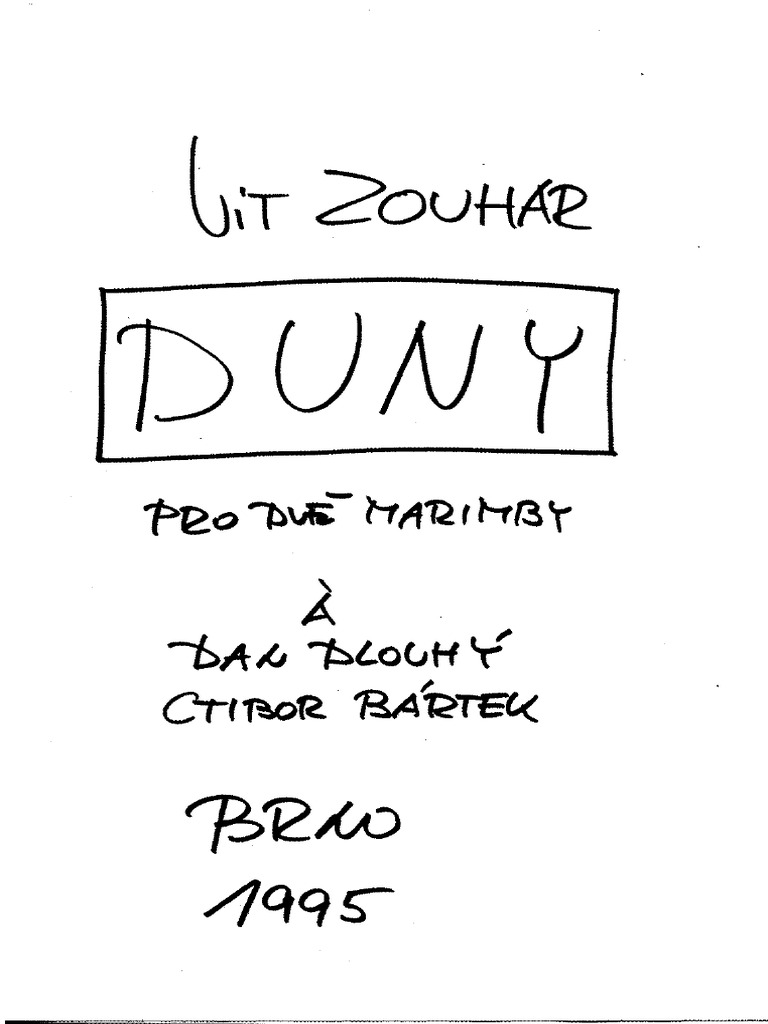 Vít ZOUHAR
DUNY
PRO DVĚ MARIMBY
À
DAN DLOUHÝ
CTIBOR BÁRTEK
BRNO
1995